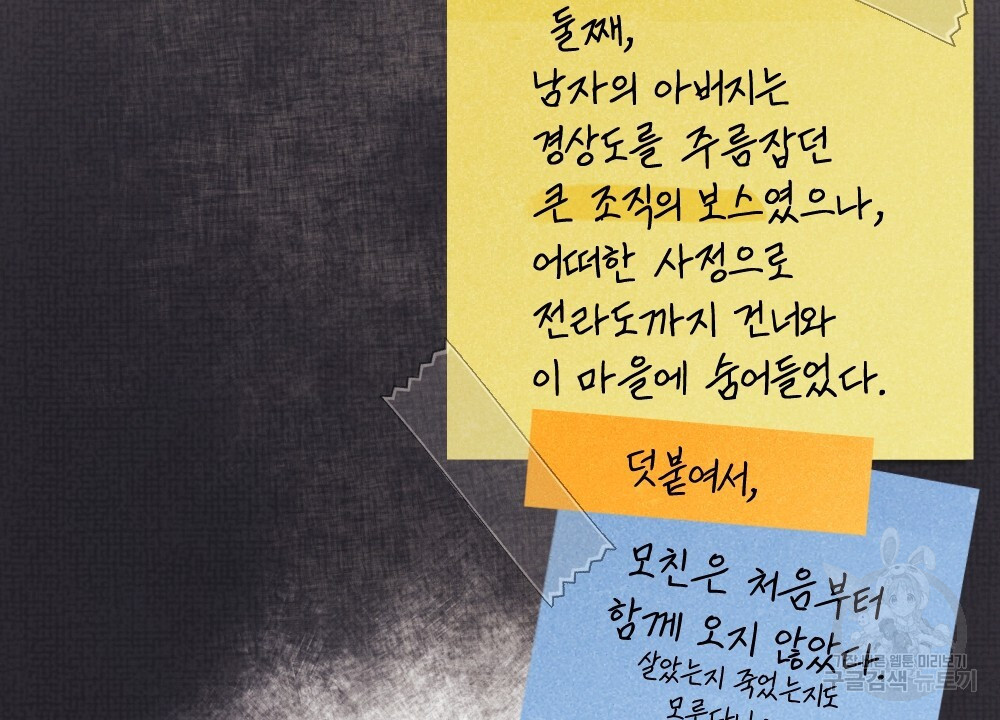 둘째,
남자의 아버지는
경상도를 주름잡던
큰 조직의 보스였으나,
어떠한 사정으로
전라도까지 건너와
이 마을에 숨어들었다.
덧붙여서,
모친은 처음부터
함께 오지 않았다.
살았는지 죽었는지도
웹툰 미리보기
구글검색 뉴토끼